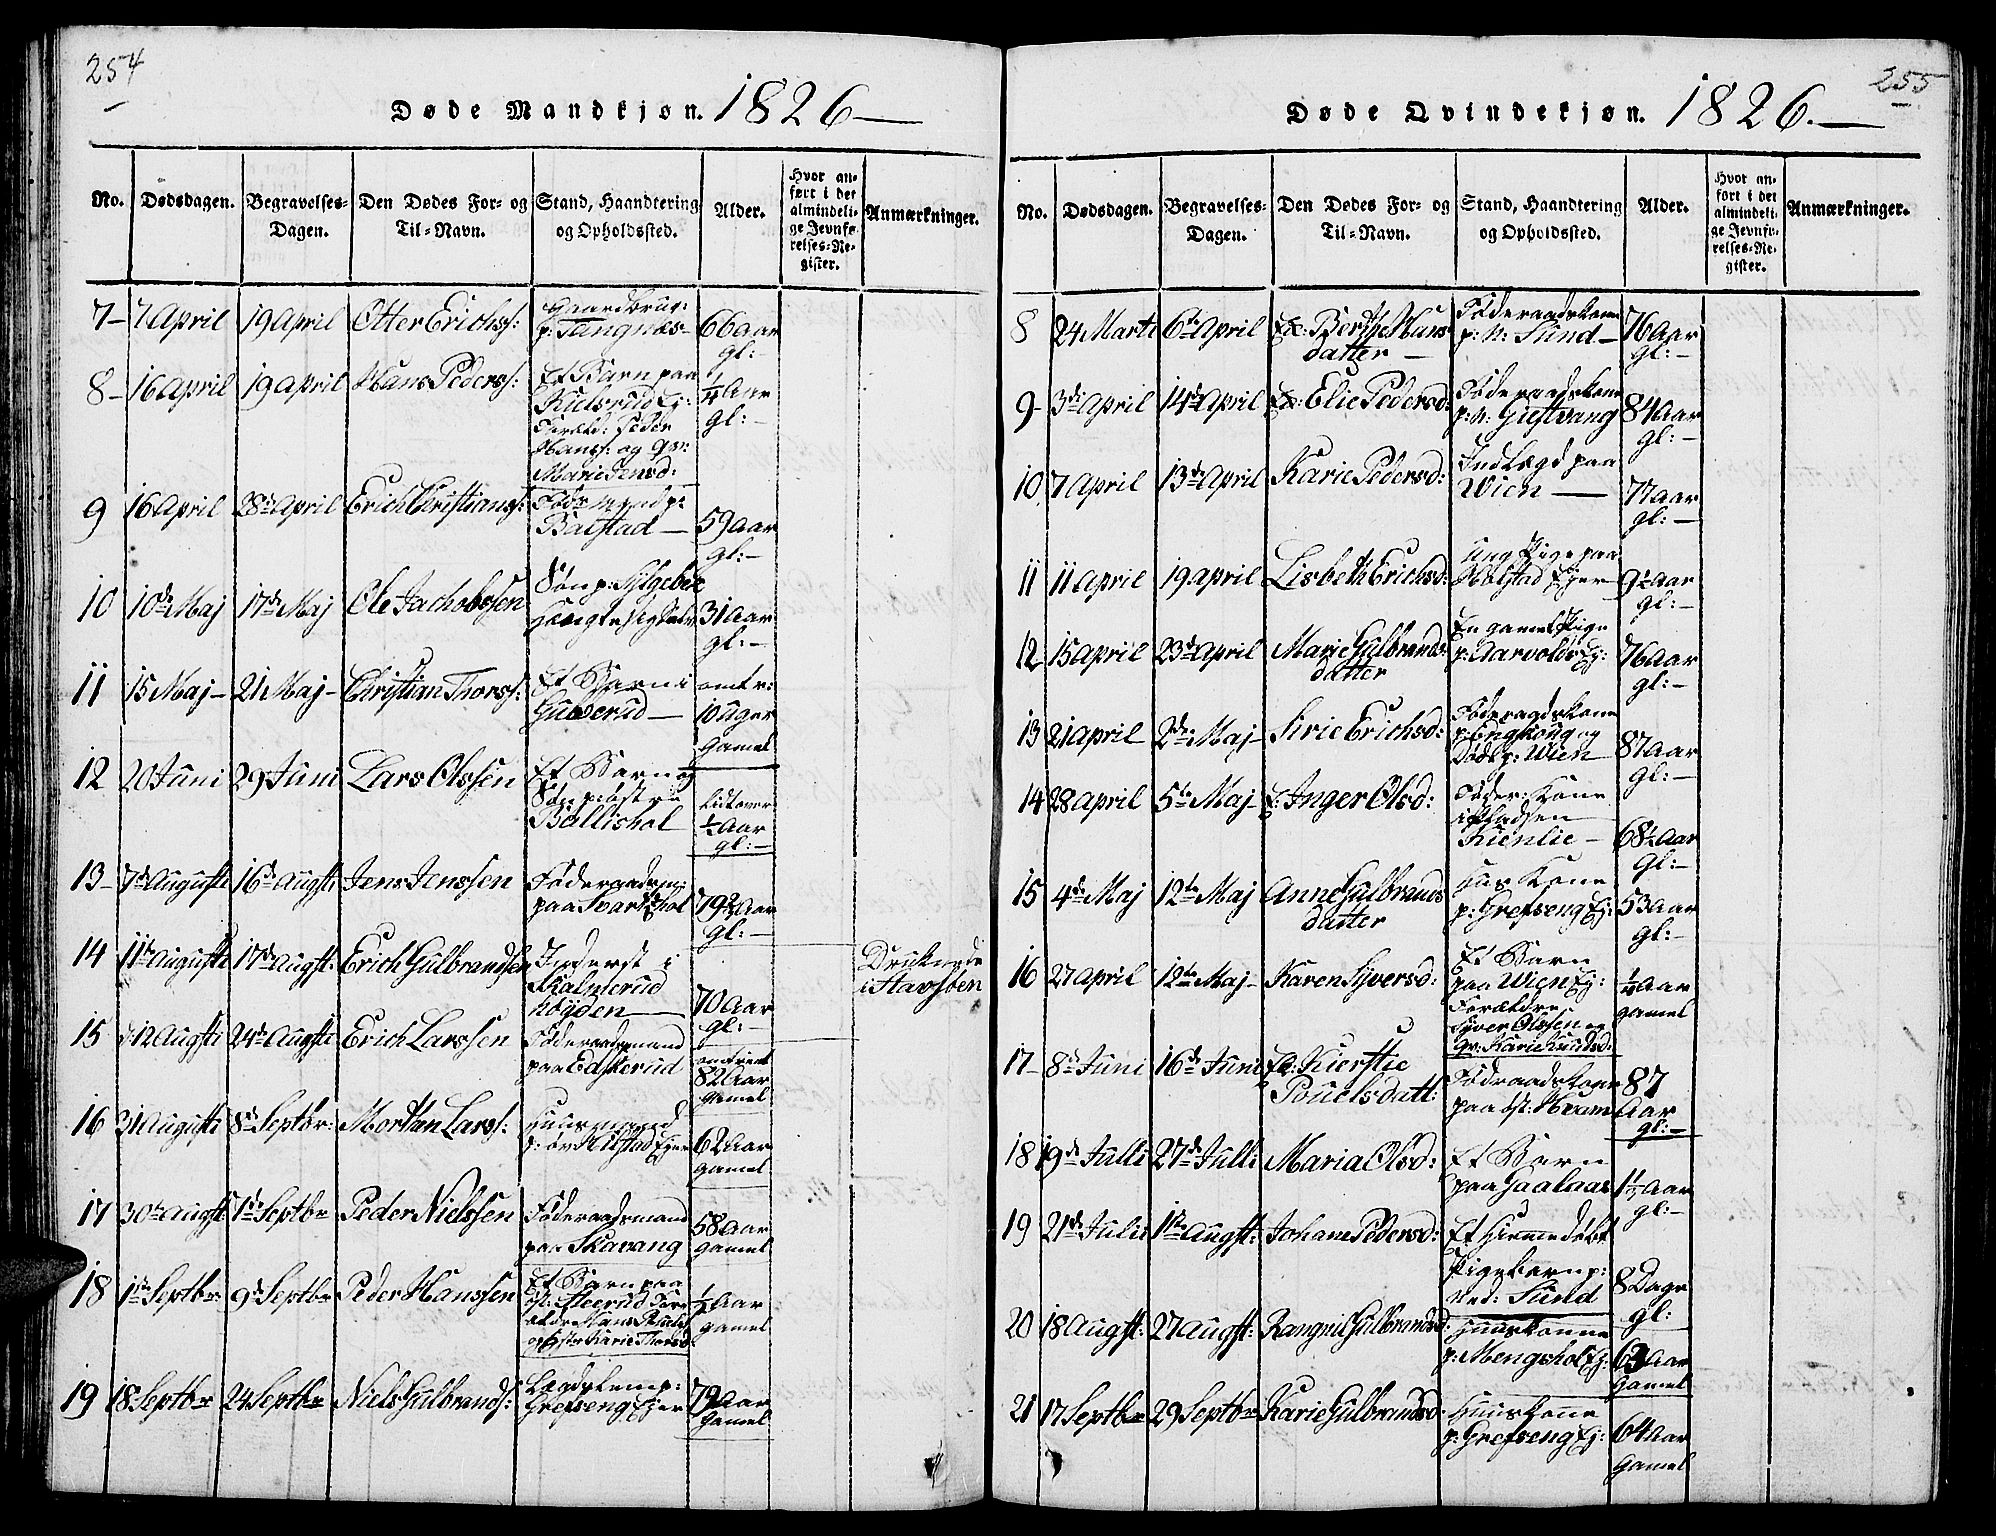 254
Døde Mandkjøn. 1826 —
No. Dødsdagen. Begravelses-Dagen. Den Dødes For- og Til-Navn. Stand, Haandtering og Opholdssted. Alder. Hvor anført i det almindelige Jevnførelses-Register. Anmærkninger.
7 — 7 April 19 April Otter Erichs: Gaardbrug: p: Tangnæs — 66 aar gl: —
8 — 16 April 19 April Hans Peders: Et Barn paa Kielsrud Ej: Foræld: Peder Hans: og Qv: Marie Jensd: 1/4 Aar gl: —
9 16 April 28de April Erich Christians: Baistad — 59 aar gl: —
10 10de Maj 17de Maj Ole Jachobssen Søn p: 31 Aar gl: —
11 15 Maj — 21 Maj — Christian Thorss: Et Barn i Gulverud — omtr: 10 Uger Gamel
12 20 Juni 29 Juni Lars Olssen Et Barn Ballishol Lidt over 1/2 Aar gl: —
13 — 7de Augusti 16de Augsti Jens Jenssen Føderaadsm: paa Svartshol 79 1/2 Aar gl: —
14 11te Augusti 17de Augst: Erich Gulbrandsen Inderst i Kalmerud høyden — 70 Aar gl: — Druknede i Starsøen
15 12 Augsti 24de Augsti Erich Larssen Føderaadsmand paa Edsterud omtrent 82 Aar gamel
16 31 Augusti 8de Septbr: Morthen Larss: Huusmand p: Eger 62 Aar gamel
17 30te Augst: 7de Septbr Peder Nielssen Føderaadsmand paa Skavang 58 Aar gamel
18 1ste Septbr 9de Septbr Peder Hanssen Et Barn paa Steerud 1/2 Aar gamel
19 18 Septbr 24 Septbr Niels Gulbrands: Lægdslem p: Grefseng Ejer 79 Aar Gamel
255
Døde Qvindekjøn. 1826. —
No. Dødsdagen. Begravelses-Dagen. Den Dødes For- og Til-Navn. Stand, Haandtering og Opholdssted. Alder. Hvor anført i det almindelige Jevnførelses-Register. Anmærkninger.
8 24 Marti 6te April Berthe Hansdatter — Føderaadskone p: n: Sund — 76 Aar gl: —
9 — 3de April 14de April Elie Pedersd: Føderaadskone p: n: Gustvang 84 Aar gl: —
10 7 April 13de April Karie Pedersd: Indlægd paa Wien — 77 aar gl: —
11 11 April 19 April Lisbeth Erichsd: Ung Pige paa Holstad Ejer 9 1/2 Aar gl: —
12 15 April 23de April Marie Gulbrandsdatter En gamel Pige p: Aarvolds Ej: 76 Aar gl: —
13 21 April 2de Maj — Sirie Erichsd: Føderaadskone p: Enghoug og Død p: Wien 87 aar gl: —
14 28 April 5te Maj — Inger Olsd: Føder: Kone i Pladsen Kienlie — 68 1/2 Aar gl: —
15 4de Maj 12te Maj Anne Gulbrandsdatter Huus Kone p: Grefseng Ej: 53 Aar gl: —
16 27 April 12te Maj — Karen Syversd: Et Barn paa Wien Ej: Forældre Syver Olssen og Qv: Karie Knudsd: 1/4 Aar gamel
17 — 8de Juni 16de Juni Kierstie Pouelsdatt: Fødraadskone paa øst: Hvam 87 Aar gl: —
18 19de Julli 27de Julli Maria Olsd: Et Barn paa Gaalaas 1 1/2 Aar gl: —
19 21de Julii 1ste Augst: Johane Pedersd: Et Hiemmedøbt Pigebarn p: Ned: Sund 8 Dage gl:
20 18 Augst: 27 Augst: Rangnil Gulbrandsd: Huuskonne p: Mengshol Ej: 63 Aar Gamel
21 17 Septbr 29 Septbr Karie Gulbrandsd: Huuskone p: Grefseng Ej: 64 Aar Gamel